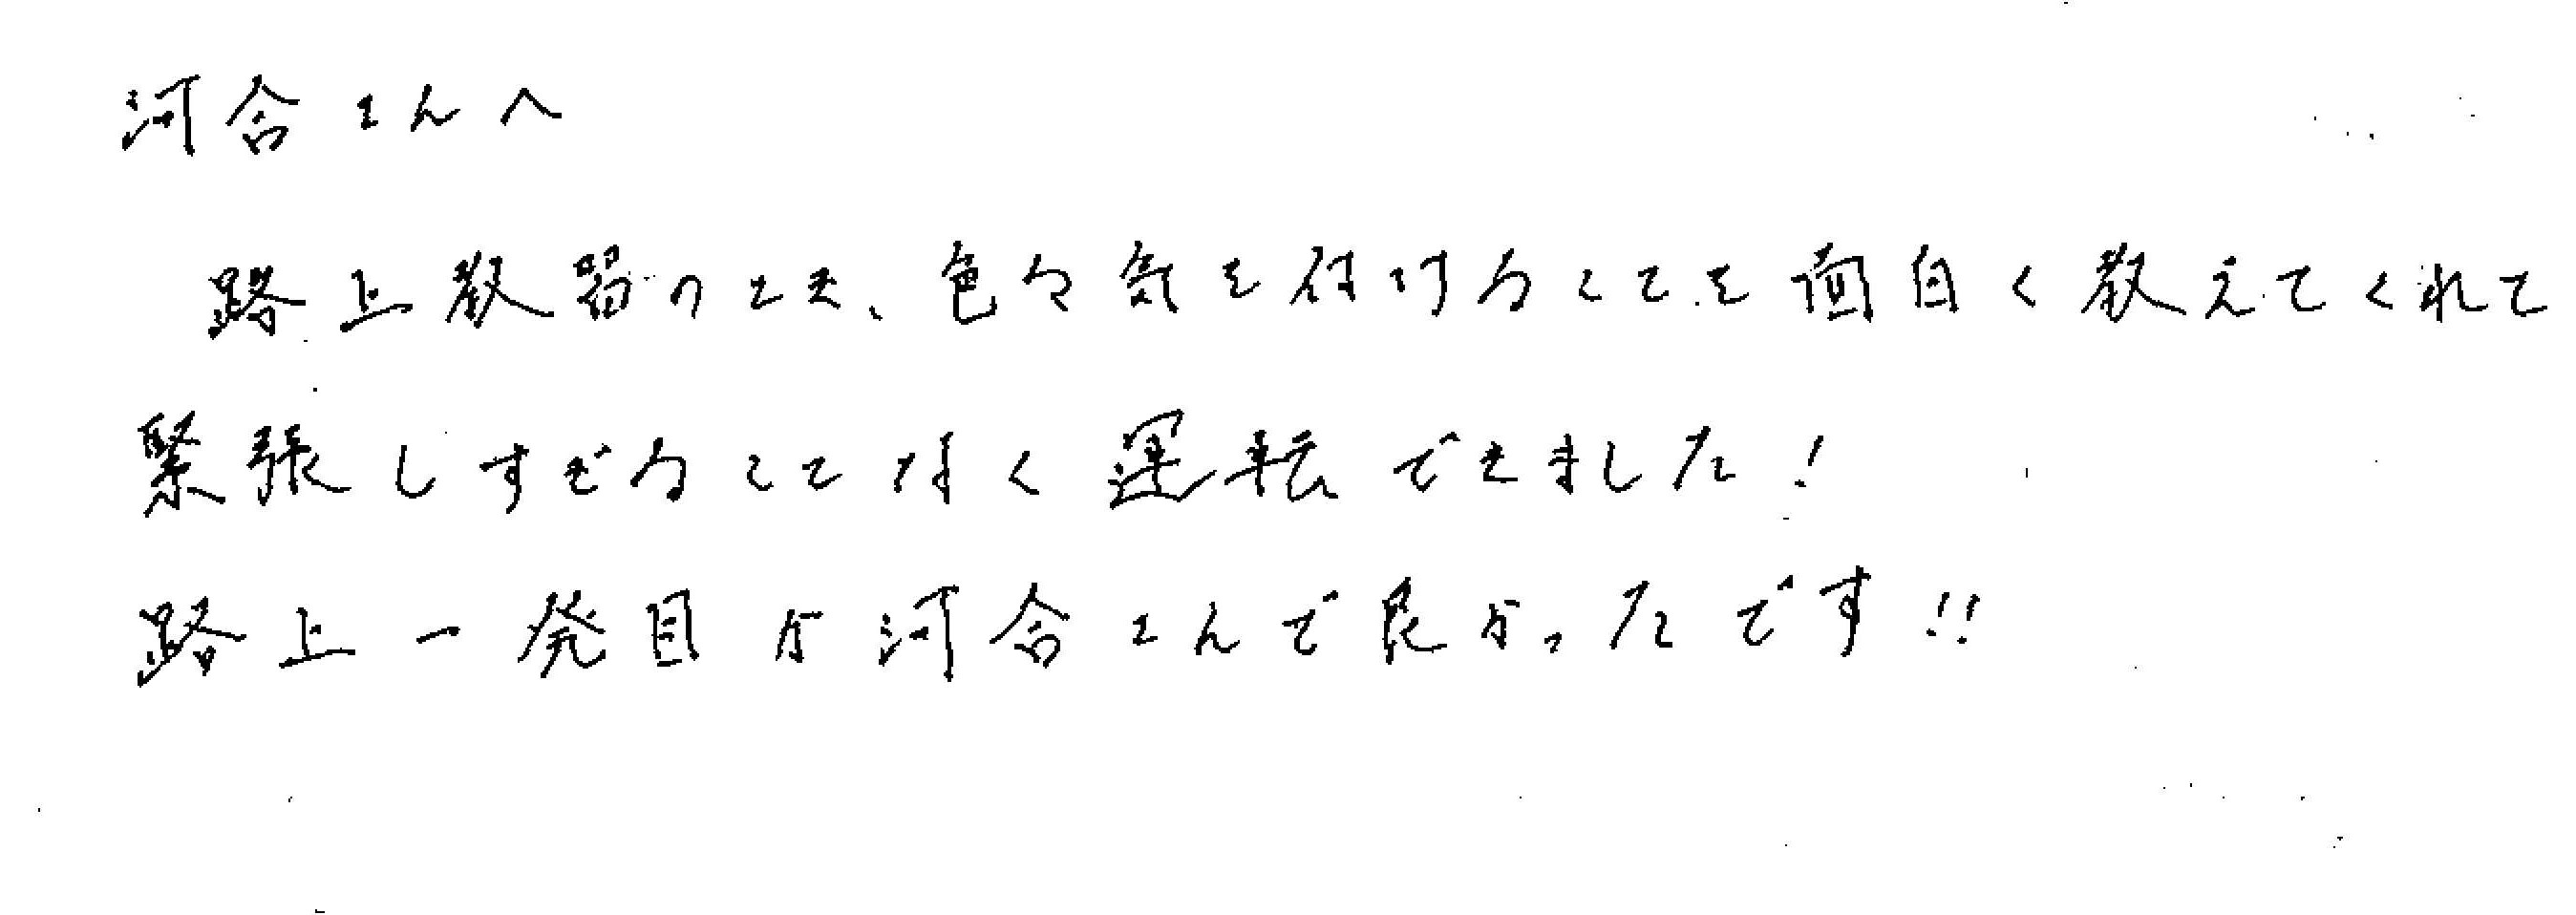 河合さんへ
路上教習のとき、色々気を付けることを面白く教えてくれて
緊張しすぎることなく運転できました!
路上一発目が河合さんで良かったです!!